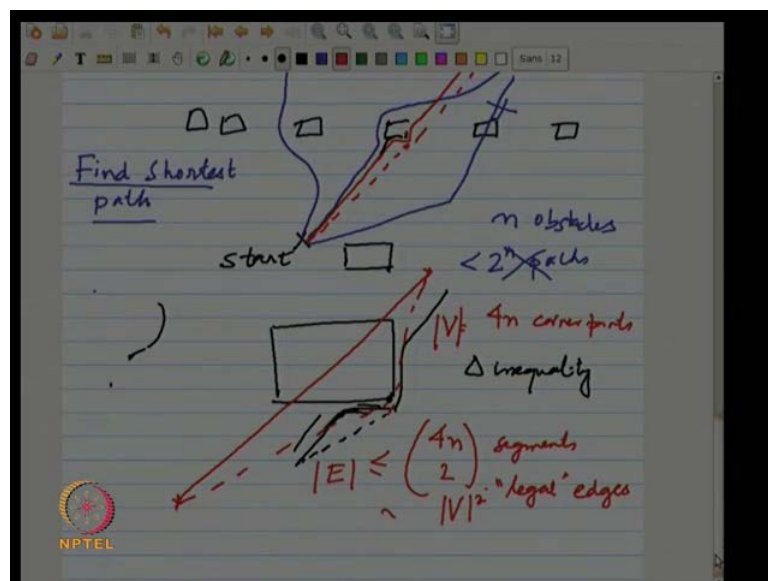 Sans 12
Find Shortest
path
start
n obstacles
< 2^n paths
|V| = 4n corner points
Δ inequality
|E| ≤ (4n 2) segments
~ |V|^2 "legal" edges
NPTEL